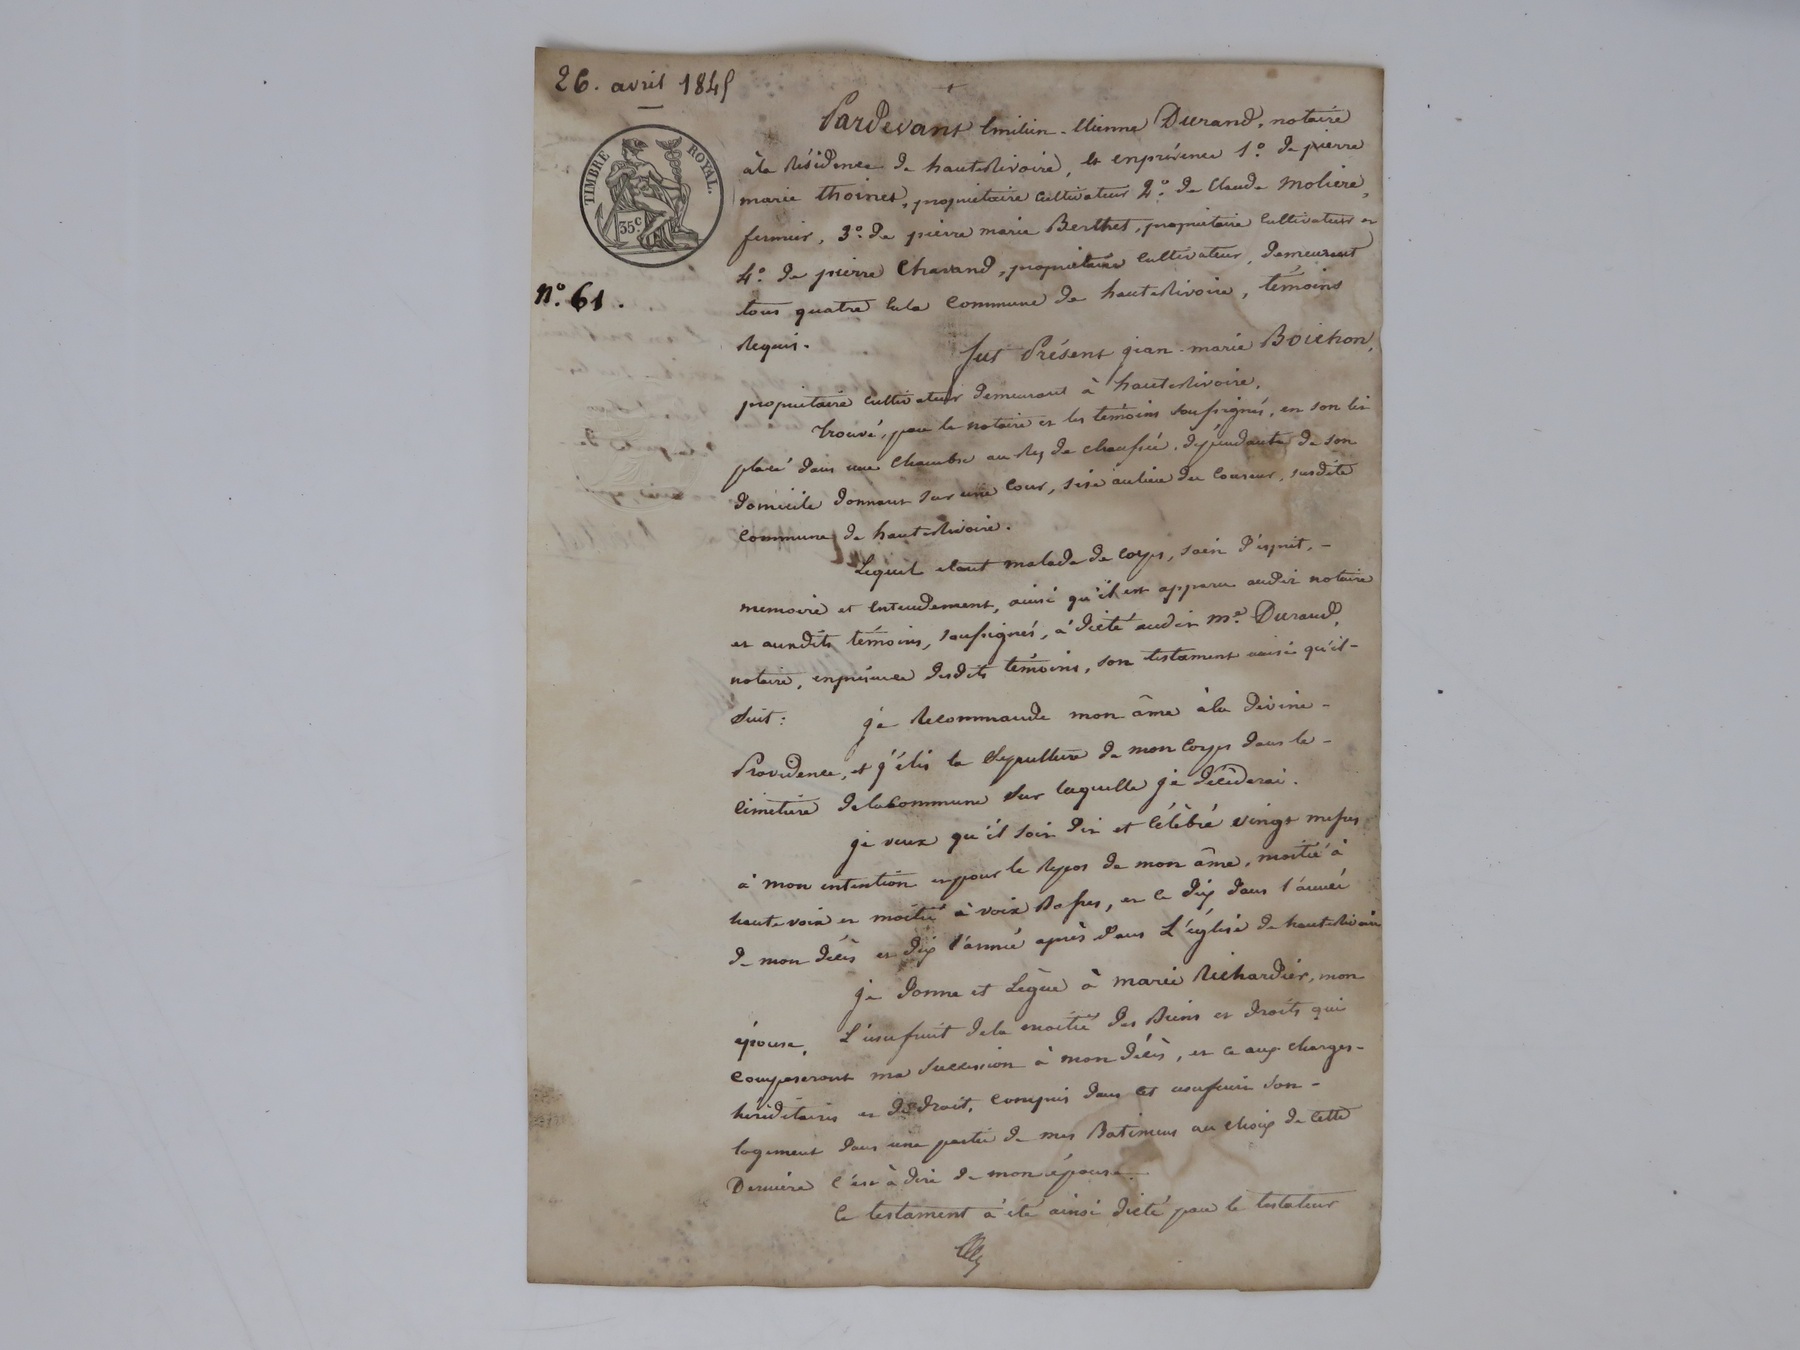 26. avril 1845
TIMBRE ROYAL.
35c
n.o 61.
Pardevant Emilien-Etienne Durand, notaire
à la Résidence de hauterivoire, et enprésence 1.o de pierre
marie thoinet, propriétaire cultivateur 2.o de Claude Moliere,
fermier, 3.o de pierre marie Berthet, propriétaire cultivateur et
4.o de pierre Chavand, propriétaire cultivateur, demeurant
tous quatre en la Commune de hauterivoire, témoins
Requis.
fut Présent jean-marie Boichon,
propriétaire cultivateur demeurant à hauterivoire.
trouvé, par le notaire et les témoins soussignés, en son lit
placé dans une Chambre au Rez de chaussée, dépendante de son
domicile donnant sur une Cour, sise au lieu du Couseur, susdite
Commune de hauterivoire.
Lequel étant malade de Corps, sain d'esprit, -
memoire et Entendement, ainsi qu'il est apparu audit notaire
et auxdits témoins, soussignés, à dicté audit M.e Durand,
notaire, enprésence desdits témoins, son testament ainsi qu'il-
suit:
je Recommande mon âme à la divine-
Providence, et j'élis la Sepulture de mon Corps dans le-
Cimetiere de la Commune sur laquelle je décéderai.
je veux qu'il soit dit et Célébré vingt messes
à mon intention et pour le Repos de mon âme, moitié à
haute voix et moitié à voix Basses, et ce dix dans l'année
de mon décès et dix l'année après dans L'église de hauterivoire
je donne et Lègue à marie Richardier, mon
épouse, L'usufruit de la moitié des Biens et droits qui
Composeront ma Succession à mon décès, et ce aux Charges-
héréditaires et de droit, Compris dans cet usufruit son-
logement dans une partie de mes Batimens au choix de Cette
Derniere C'est à dire de mon épouse.
Ce testament à été ainsi dicté par le testateur